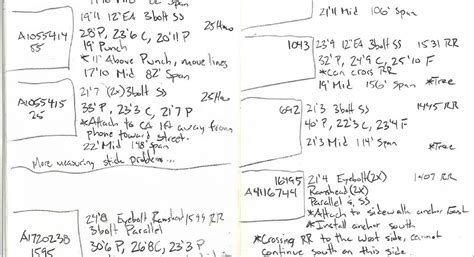 19'11 12"EA 3bolt SS
25 Hano
A1055414
55
28'P, 23'6 C, 20'11 P
19' Punch
*5'11" Above Punch, move lines
17'10 Mid 82' Span
21'7 (2x) 3bolt SS
A1055415
25
33'P, 23'3 C, 21'7 P
*Attach to CA 1ft away from
phone toward street.
22' Mid 148' Span
More measuring stick problems...
24'8 Eyebolt Ramshead 1599 RR
3bolt Parallel
A1720238
1595
30'6 P, 26'8C, 23'3 F
21'11 Mid 106' Span
1043
23'9 12"EA 3bolt SS 1531 RR
32'P, 24'9 C, 25'10 F
*can cross RR
*Tree
19' Mid 156' Span
692
21'3 3bolt SS 1445 RR
40'P, 22'3 C, 23'4 F
*Tree
21'3 Mid 114' Span
16495
A4116744
21'4 Eyebolt(2x) 1407 RR
Ramshead(2x)
Parallel & SS
*Attach to sidewalk anchor East
*Install anchor south
*Crossing RR to the West side, cannot
continue south on this side.